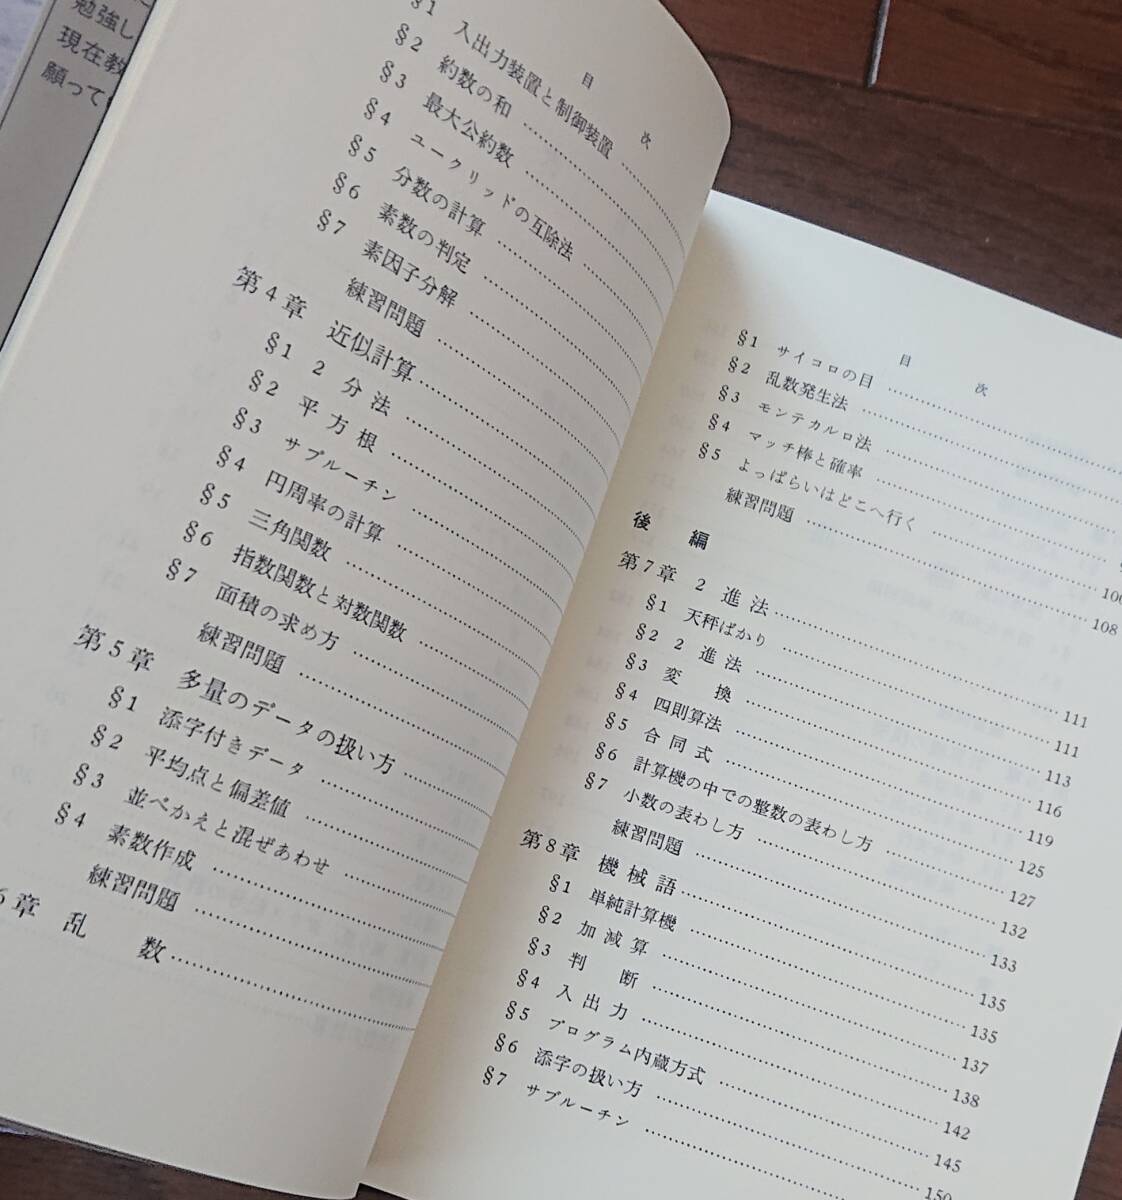 勉強し
現在教
願って
目 次
§1 入出力装置と制御装置
§2 約数の和
§3 最大公約数
§4 ユークリッドの互除法
§5 分数の計算
§6 素数の判定
§7 素因子分解
練習問題
第4章 近似計算
§1 2分法
§2 平方根
§3 サブルーチン
§4 円周率の計算
§5 三角関数
§6 指数関数と対数関数
§7 面積の求め方
練習問題
第5章 多量のデータの扱い方
§1 添字付きデータ
§2 平均点と偏差値
§3 並べかえと混ぜあわせ
§4 素数作成
練習問題
6章 乱数
目 次
§1 サイコロの目
§2 乱数発生法
§3 モンテカルロ法
§4 マッチ棒と確率
§5 よっぱらいはどこへ行く 106
練習問題 108
後編
第7章 2進法 111
§1 天秤ばかり 111
§2 2進法 113
§3 変換 116
§4 四則算法 119
§5 合同式 125
§6 計算機の中での整数の表わし方 127
§7 小数の表わし方 132
練習問題 133
第8章 機械語 135
§1 単純計算機 135
§2 加減算 137
§3 判断 138
§4 入出力 142
§5 プログラム内蔵方式 145
§6 添字の扱い方 150
§7 サブルーチン